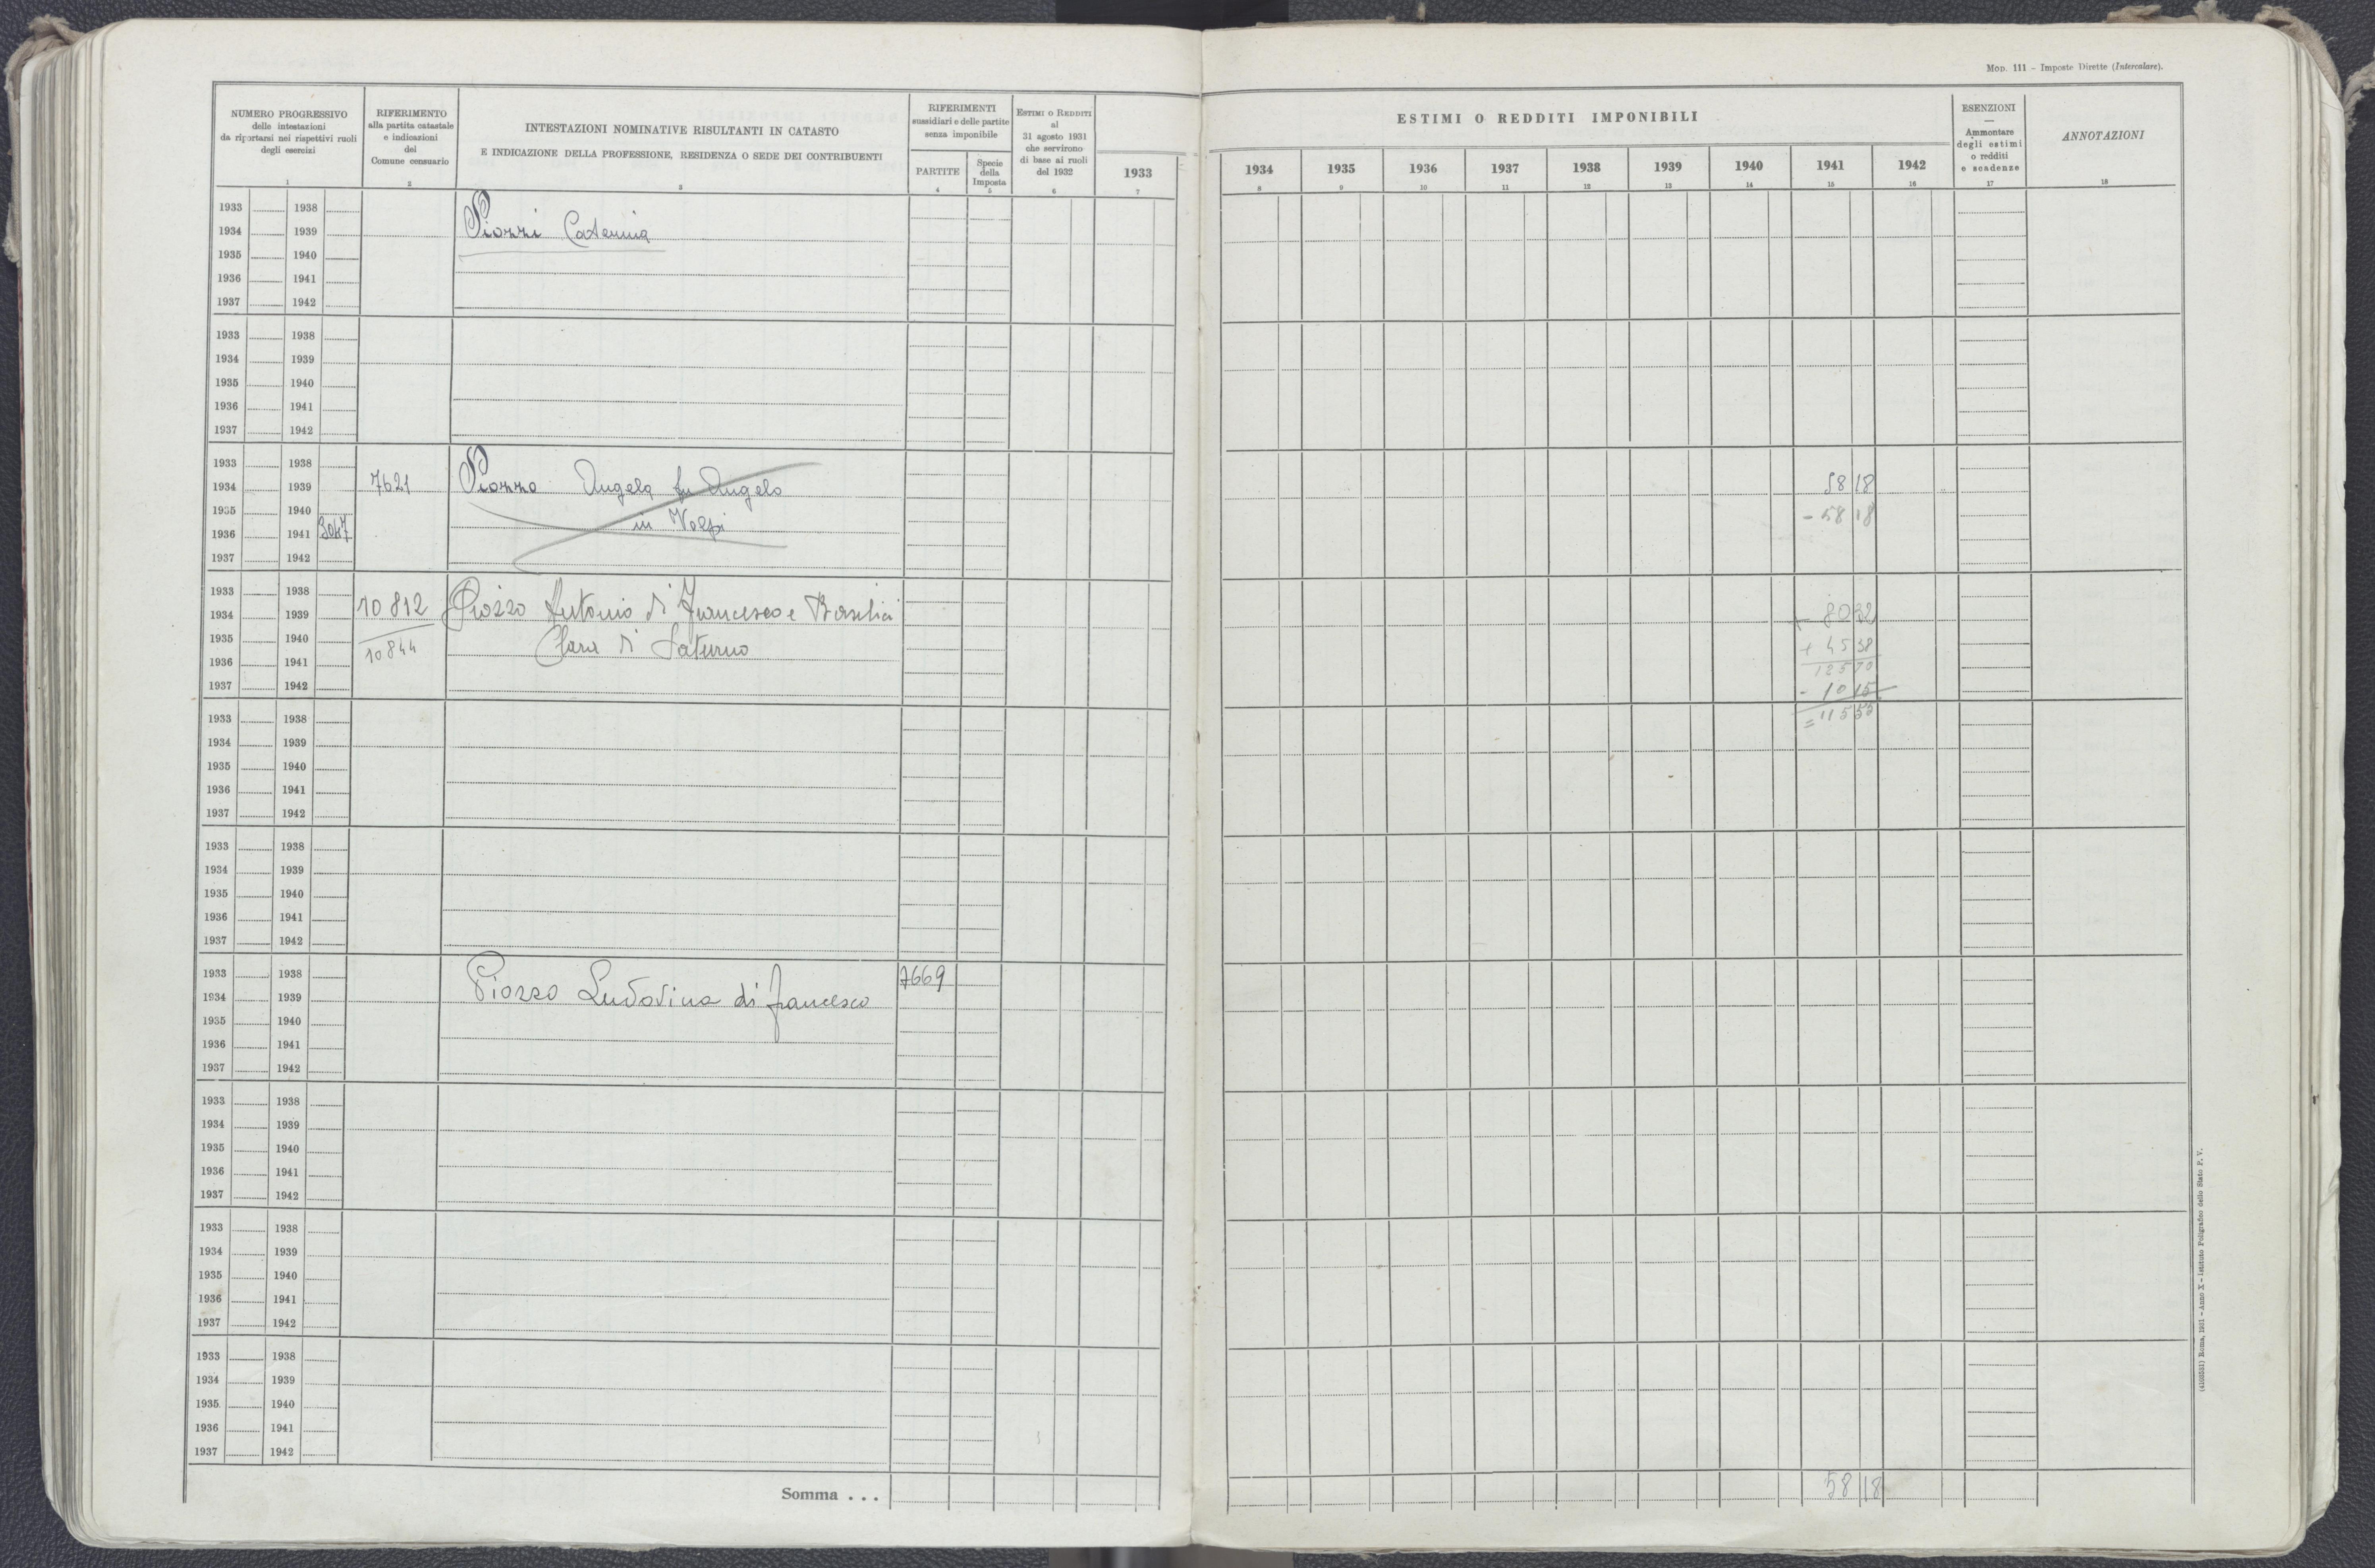 Mod. 111 - Imposte Dirette (Intercalare).
NUMERO PROGRESSIVO
delle intestazioni
da riportarsi nei rispettivi ruoli
degli esercizi
1
RIFERIMENTO
alla partita catastale
e indicazioni
del
Comune censuario
2
INTESTAZIONI NOMINATIVE RISULTANTI IN CATASTO
E INDICAZIONE DELLA PROFESSIONE, RESIDENZA O SEDE DEI CONTRIBUENTI
3
RIFERIMENTI
sussidiari e delle partite
senza imponibile
PARTITE
4
Specie
della
Imposta
5
ESTIMI O REDDITI
al
31 agosto 1931
che servirono
di base ai ruoli
del 1932
6
1933
7
ESTIMI O REDDITI IMPONIBILI
1934 1935 1936 1937 1938 1939 1940 1941 1942
8 9 10 11 12 13 14 15 16
ESENZIONI
—
Ammontare
degli estimi
o redditi
e scadenze
17
ANNOTAZIONI
18
1933 1938
1934 1939 Piozzi Caterina
1935 1940
1936 1941
1937 1942
1933 1938
1934 1939
1935 1940
1936 1941
1937 1942
1933 1938
1934 1939 7621 Piozzo Angela fu Angelo 58 18
1935 1940 in Volpi - 58 18
1936 1941 3047
1937 1942
1933 1938
1934 1939 10812 Piozzo Antonio di Francesco e Basilici + 80 32
1935 1940 10844 Clara di Saturno + 45 38
1936 1941 125 70
1937 1942 - 10 15
= 115 55
1933 1938
1934 1939
1935 1940
1936 1941
1937 1942
1933 1938
1934 1939
1935 1940
1936 1941
1937 1942
1933 1938 7669
1934 1939 Piozzo Ludovina di Francesco
1935 1940
1936 1941
1937 1942
1933 1938
1934 1939
1935 1940
1936 1941
1937 1942
1933 1938
1934 1939
1935 1940
1936 1941
1937 1942
1933 1938
1934 1939
1935 1940
1936 1941
1937 1942
Somma . . . 58 18
(4103551) Roma, 1931 - Anno X - Istituto Poligrafico dello Stato P. V.